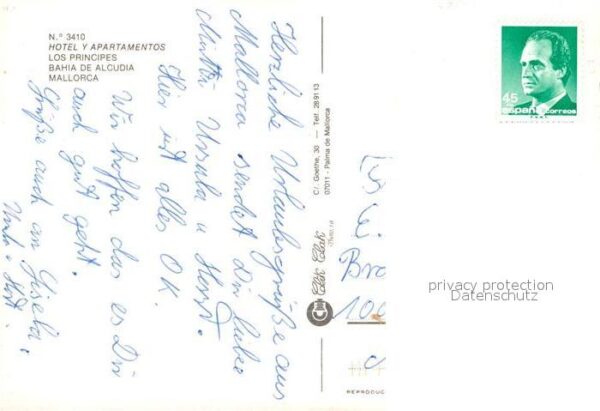 N.º 3410
HOTEL Y APARTAMENTOS
LOS PRINCIPES
BAHIA DE ALCUDIA
MALLORCA
Herzliche Urlaubsgrüße aus
Mallorca sendet Dir liebe
Mutti Ursula u Horst.
Hier ist alles OK.
Wir hoffen das es Dir
auch gut geht.
Grüße auch an Gisela.
C/. Goethe, 30 — Telf. 28 91 13
07011 - Palma de Mallorca
Clik Clak
REPRODUC
45
españa correos
privacy protection
Datenschutz